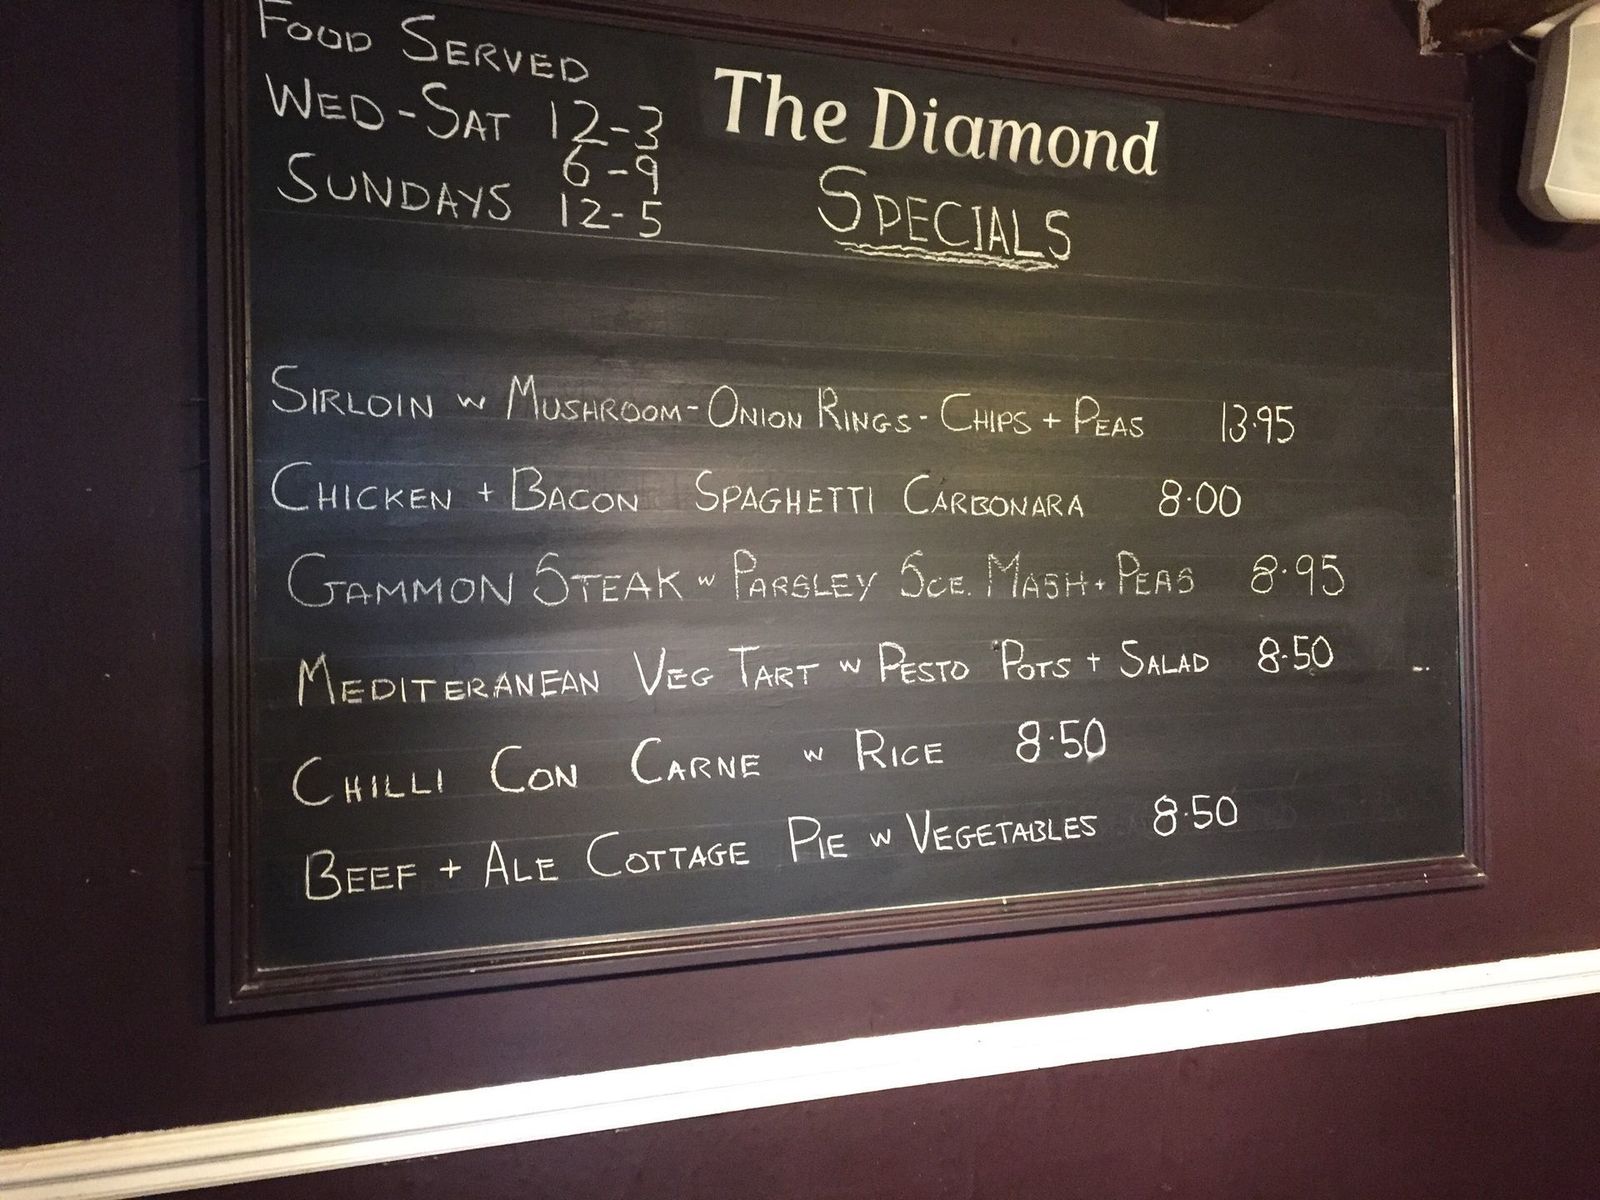 FOOD SERVED
WED-SAT 12-3
6-9
SUNDAYS 12-5
The Diamond
SPECIALS
SIRLOIN W MUSHROOM-ONION RINGS-CHIPS + PEAS 13.95
CHICKEN + BACON SPAGHETTI CARBONARA 8.00
GAMMON STEAK W PARSLEY SCE. MASH + PEAS 8.95
MEDITERANEAN VEG TART W PESTO POTS + SALAD 8.50
CHILLI CON CARNE W RICE 8.50
BEEF + ALE COTTAGE PIE W VEGETABLES 8.50